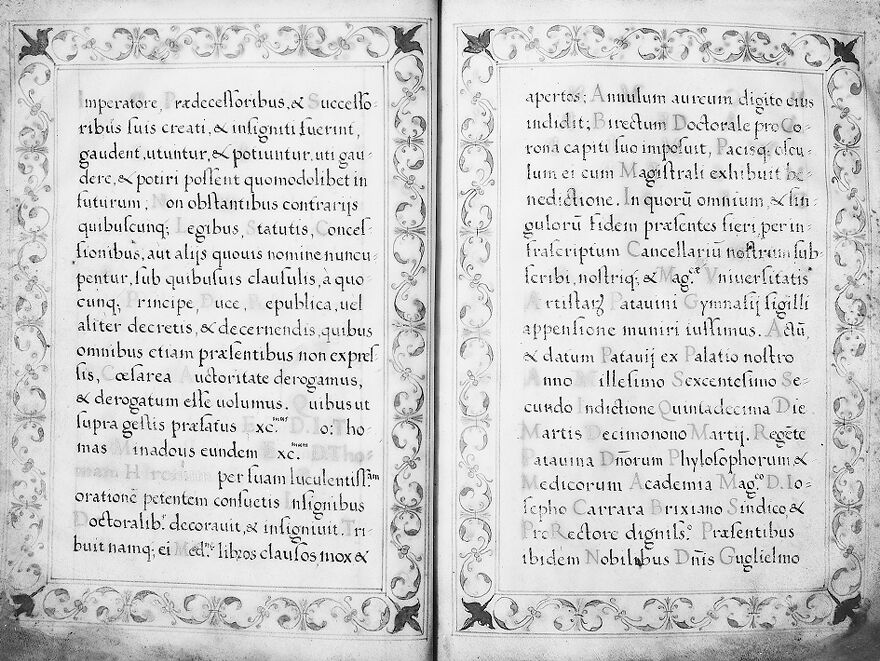 Imperatore, Prædecessoribus, & Successo-
ribus suis creati, & insigniti fuerint,
gaudent, utuntur, & potiuntur, uti gau-
dere, & potiri possent quomodolibet in
futurum, Non obstantibus contrarijs
quibuscunq; Legibus, Statutis, Conces-
sionibus, aut alijs quouis nomine nuncu-
pentur, sub quibusuis clausulis, à quo-
cunq; Principe, Duce, Republica, uel
aliter decretis, & decernendis, quibus
omnibus etiam præsentibus non expres-
sis, Cæsarea Auctoritate derogamus,
& derogatum esse uolumus. Quibus ut
supra gestis præfatus Exc.mus D. Io: Tho-
mas Minadous eundem Exc.mum D. Tho-
mam H
per suam luculentiss.am
orationē petentem consuetis Insignibus
Doctoralib.s decorauit, & insigniuit. Tri-
buit namq; ei libros clausos mox &
apertos; Annulum aureum digito eius
indidit; Birectum Doctorale pro Co-
rona capiti suo imposuit, Pacisq; oscu-
lum ei cum Magistrali exhibuit be-
nedictione. In quorū omnium, & sin-
gulorū fidem præsentes fieri, per in-
frascriptum Cancellariū nostrum sub-
scribi, nostriq; & Mag.cæ Vniuersitatis
Artistarȝ Patauini Gymnasij sigilli
appensione muniri iussimus. Actū,
& datum Patauij ex Palatio nostro
Anno Millesimo Sexcentesimo Se-
cundo Indictione Quintadecima Die
Martis Decimonono Martij. Regēte
Patauina Dñorum Phylosophorum &
Medicorum Academia Mag.co D. Io-
sepho Carrara Brixiano Sindico, &
ProRectore digniss.o Præsentibus
ibidem Nobilibus Dñis Guglielmo